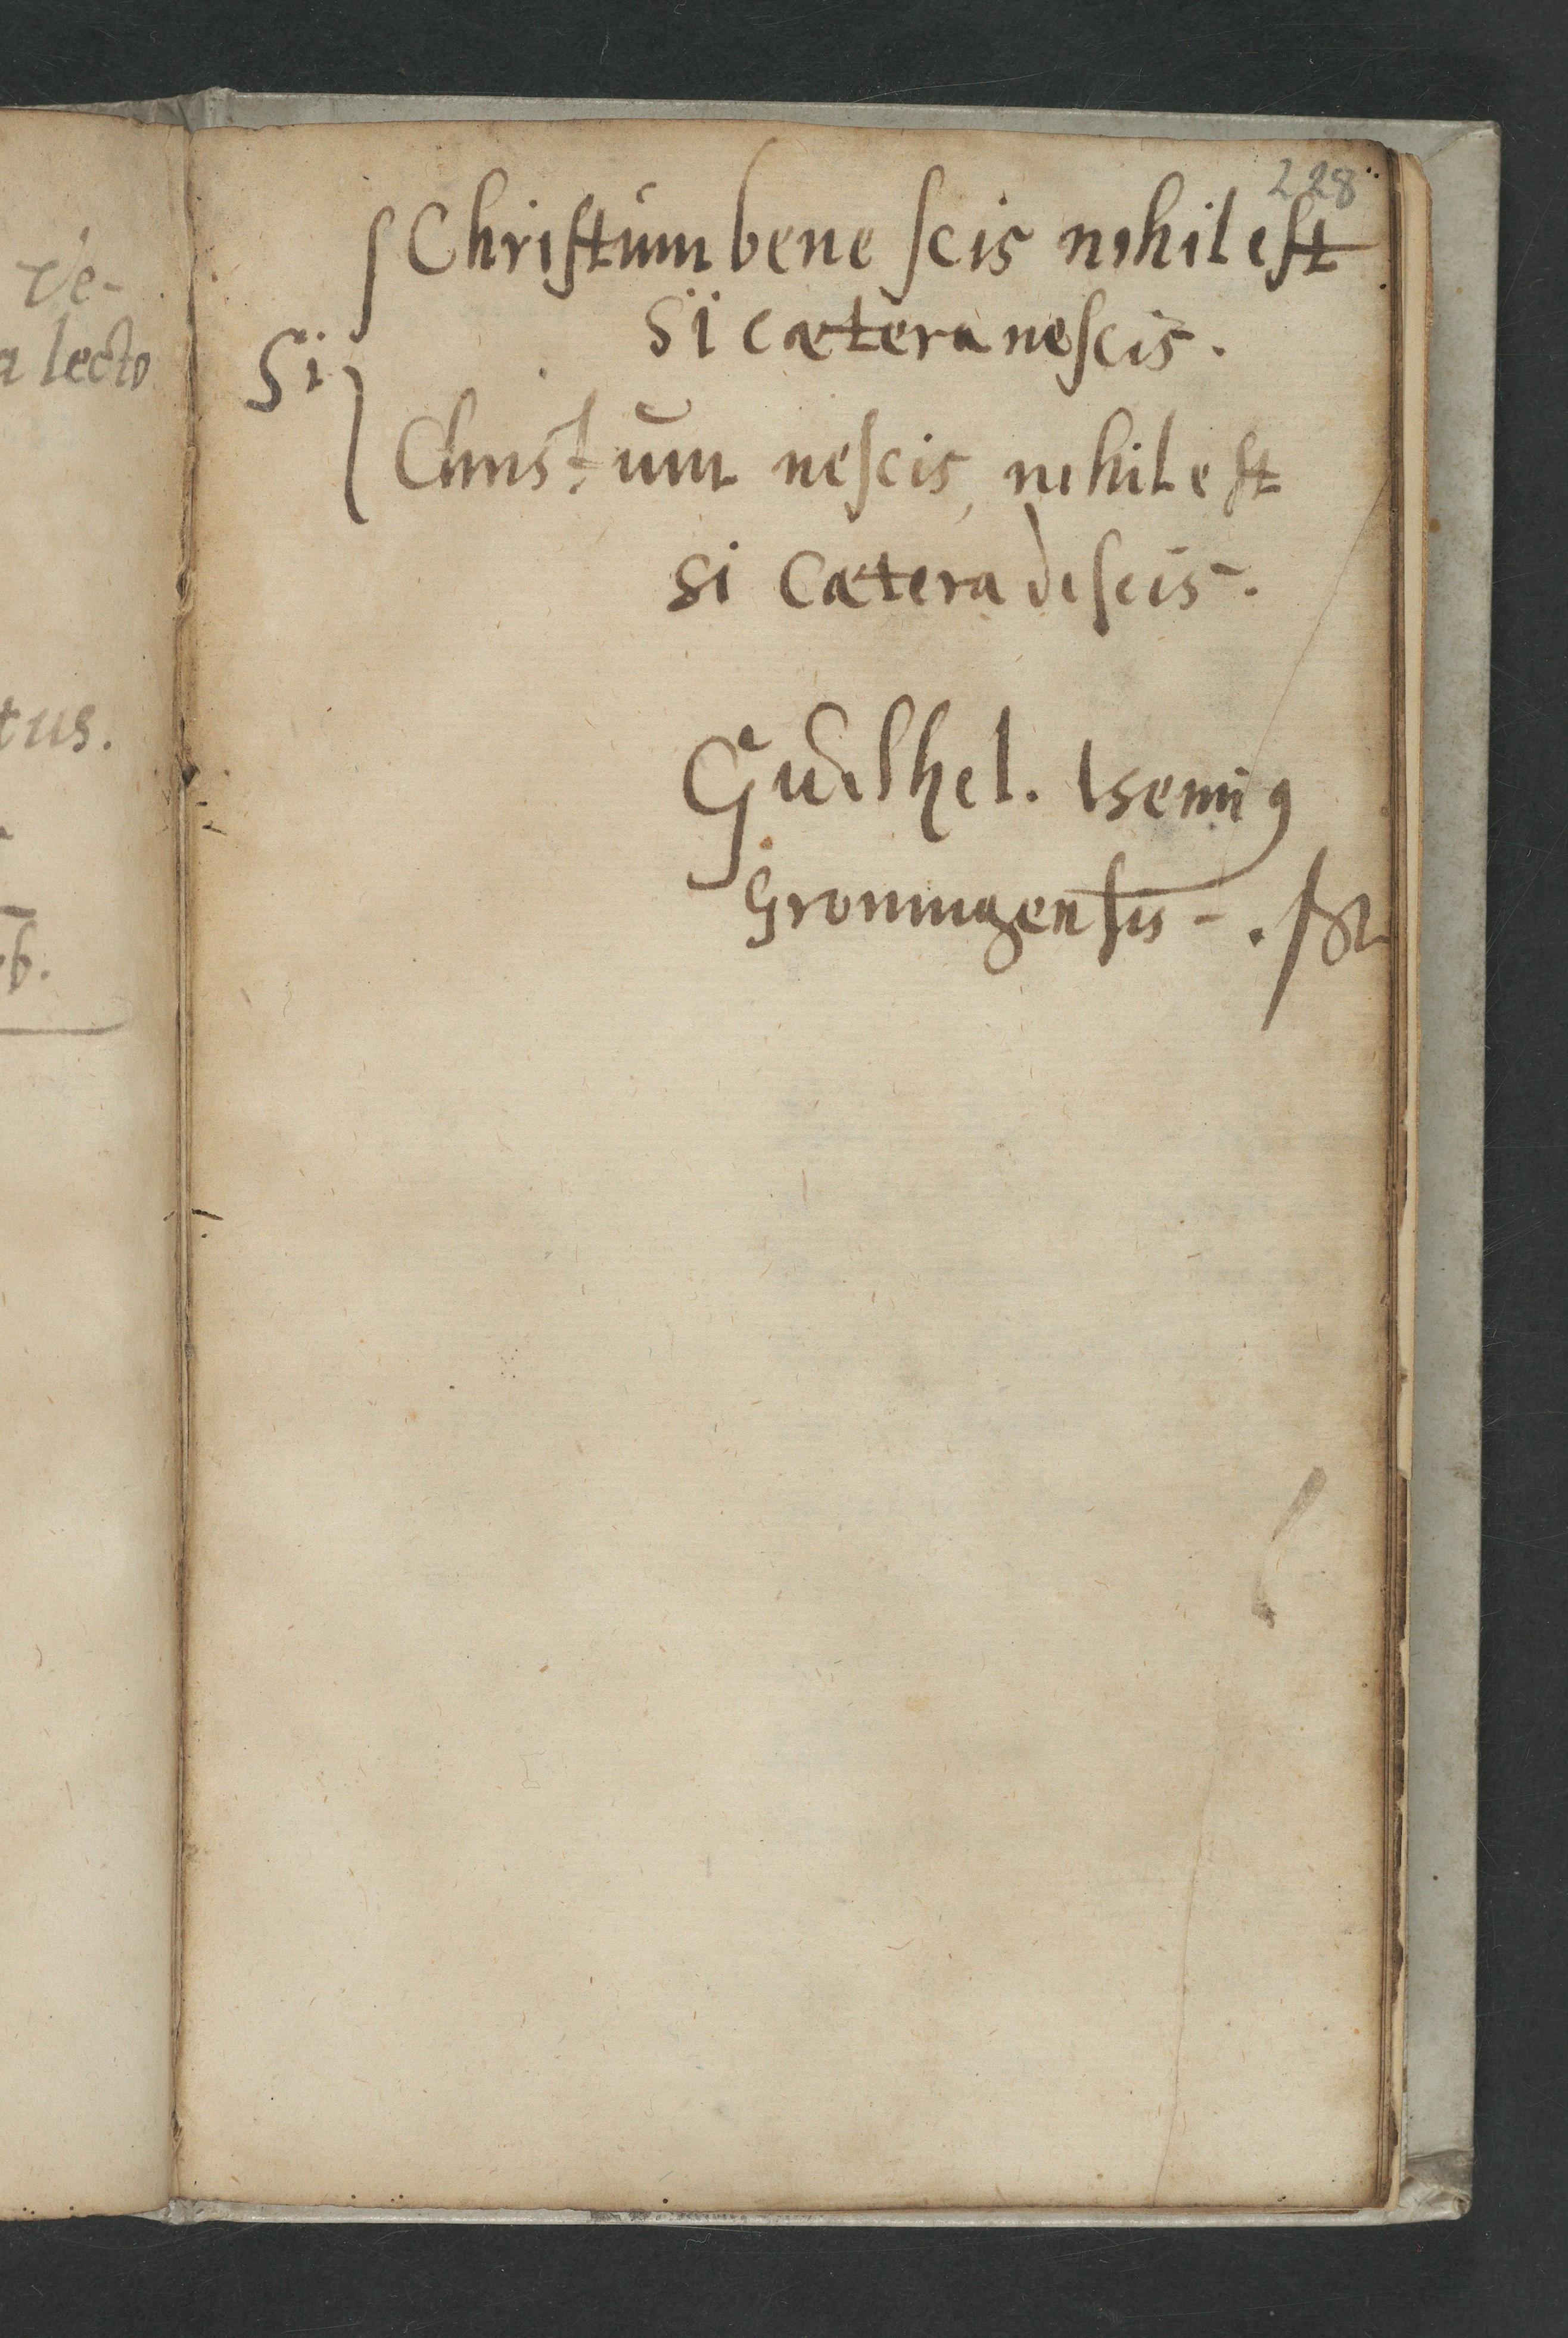 228
Christum bene scis nihil est
si caetera nescis.
Si
Christum nescis, nihil est
si caetera discis.
Guilhel. Isemius
Groningensis
ve-
a lecto
tus.